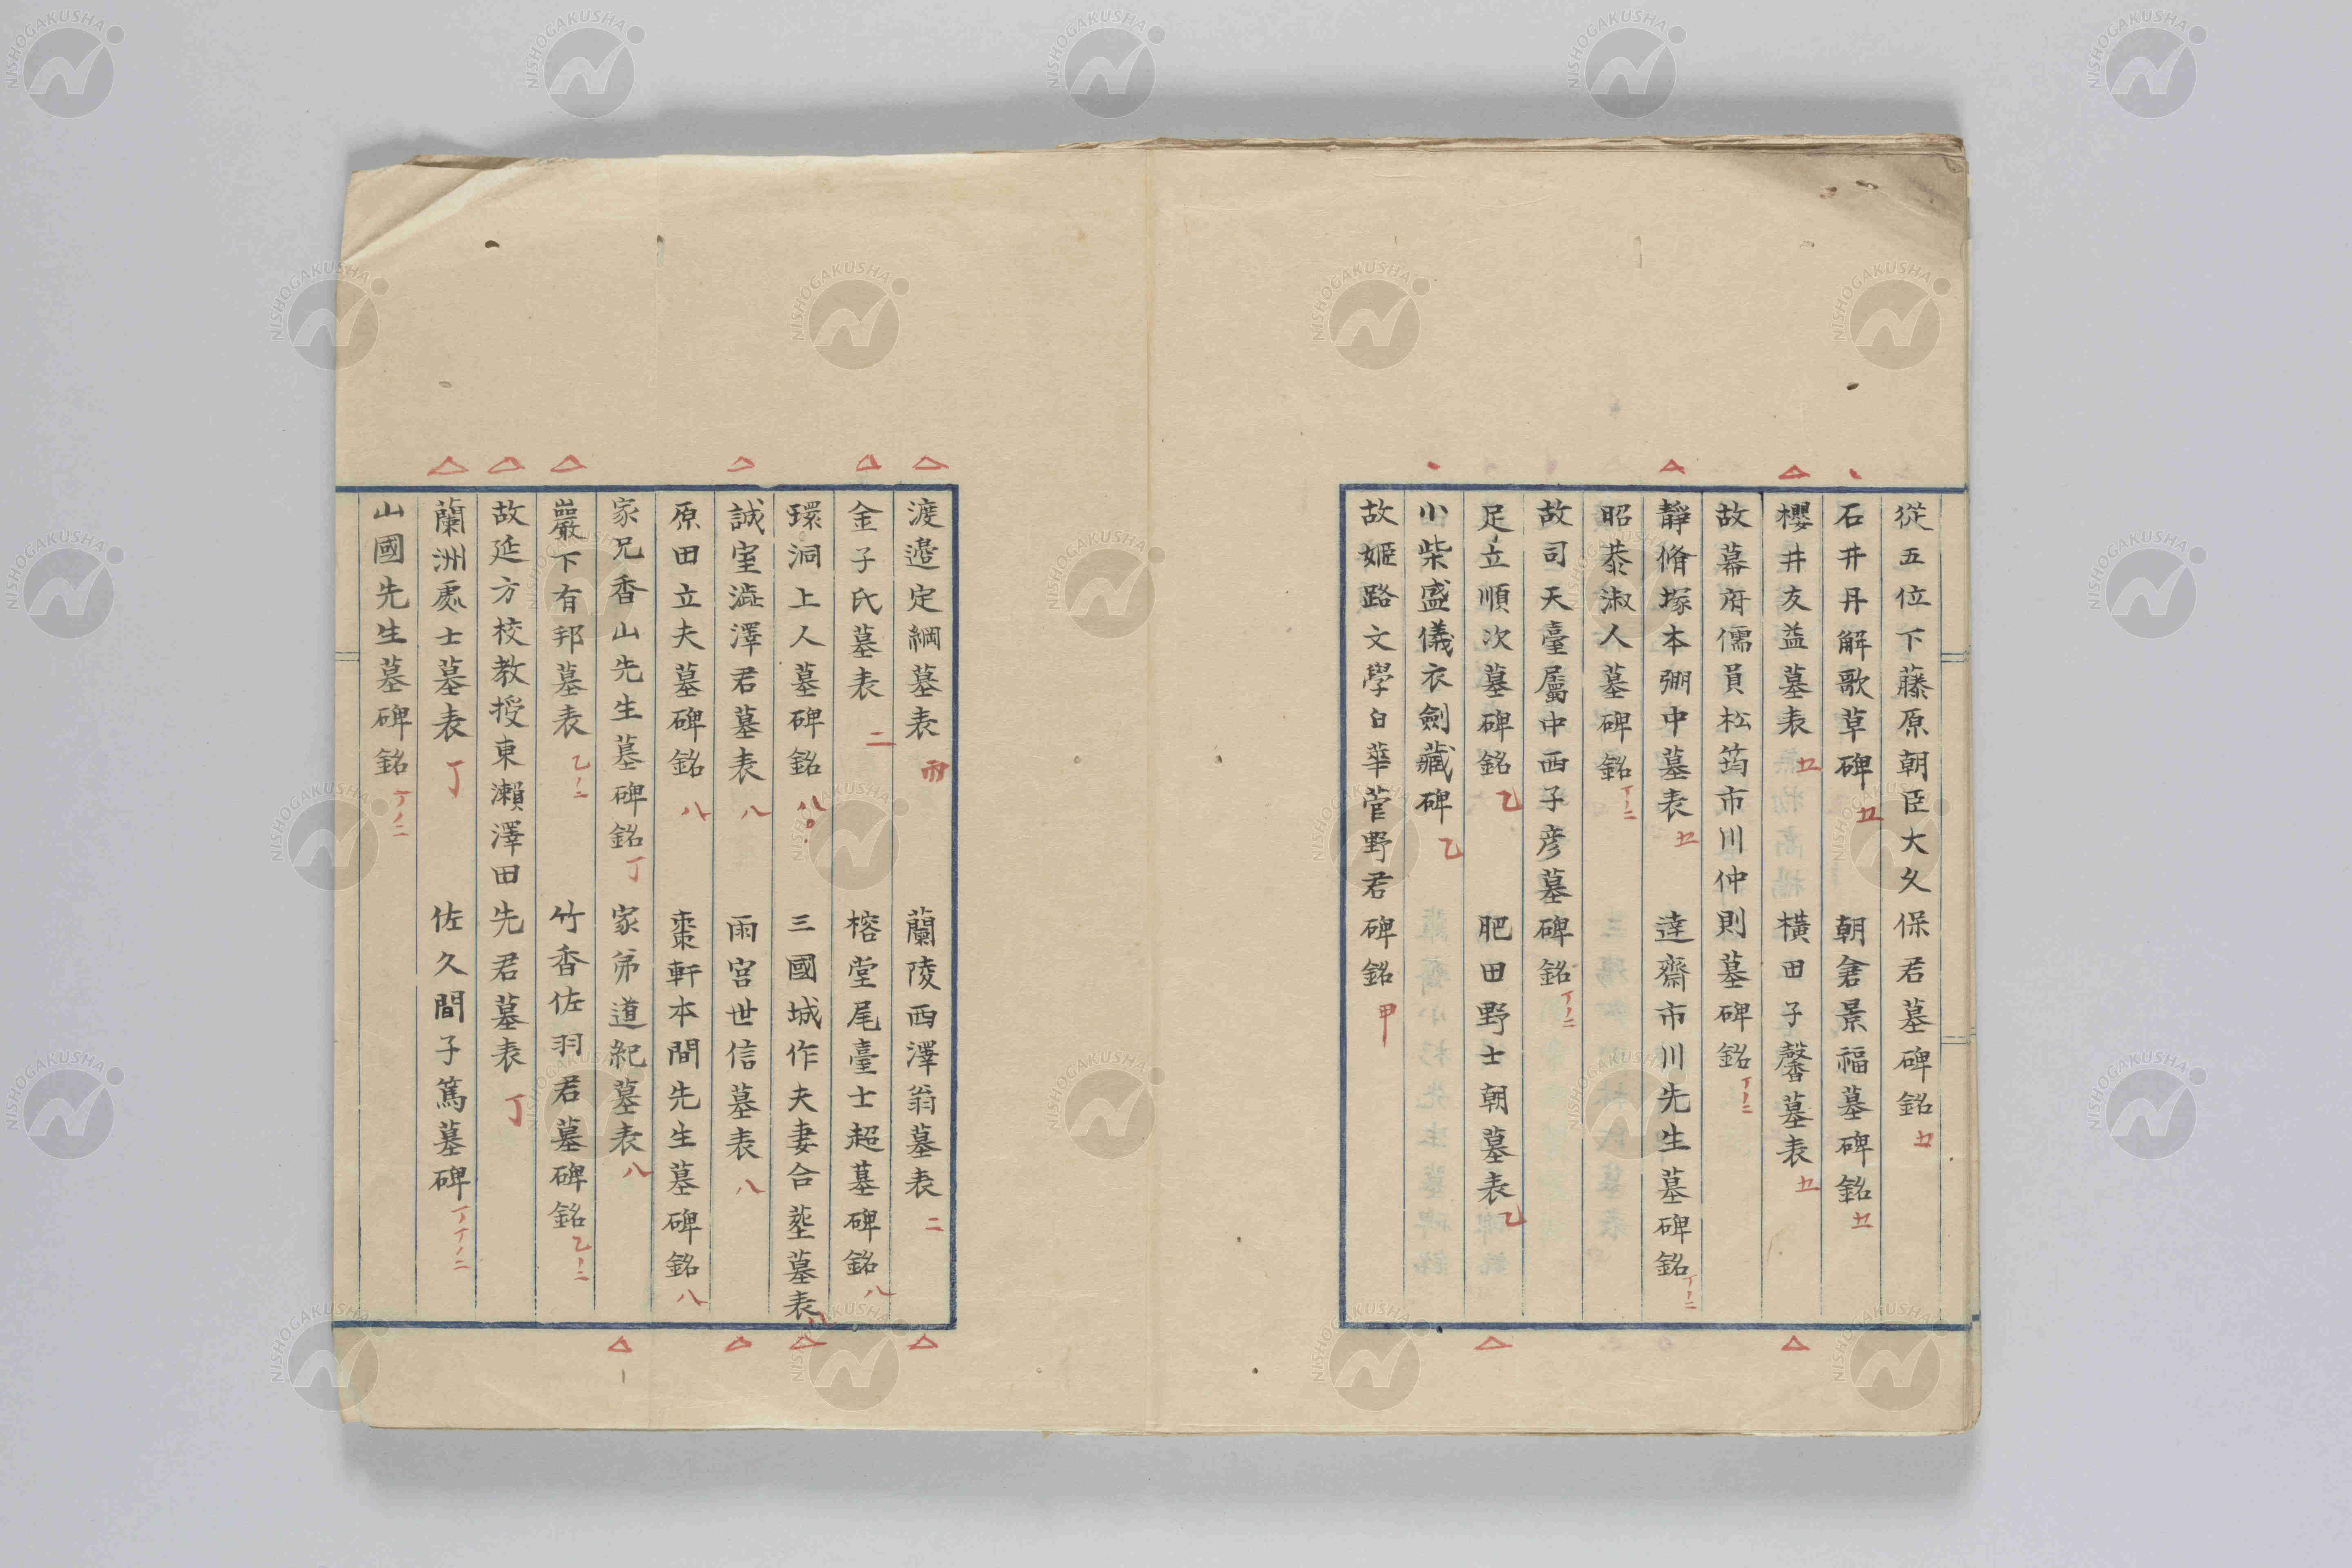 從五位下藤原朝臣大久保君墓碑銘 廿
石井丹解歌草碑 廿 朝倉景福墓碑銘 廿
櫻井友益墓表 廿 橫田子馨墓表 廿
故幕府儒員松筠市川仲則墓碑銘 丁ノ二
靜脩塚本弸中墓表 廿 達齋市川先生墓碑銘 丁ノ二
昭恭淑人墓碑銘 丁ノ二
故司天臺屬中西子彦墓碑銘 丁ノ二
足立順次墓碑銘 乙 肥田野士朝墓表 乙
小柴盛儀衣劍藏碑 乙
故姬路文學白華菅野君碑銘 甲
渡邉定綱墓表 丙 蘭陵西澤翁墓表 二
金子氏墓表 二 榕堂尾臺士超墓碑銘 八
環洞上人墓碑銘 八 三國城作夫妻合葬墓表 八
誠室澁澤君墓表 八 雨宮世信墓表 八
原田立夫墓碑銘 八 棗軒本間先生墓碑銘 八
家兄香山先生墓碑銘 丁 家弟道紀墓表 八
巖下有邦墓表 乙ノ二 竹香佐羽君墓碑銘 乙ノ二
故延方校教授東瀨澤田先君墓表 丁
蘭洲處士墓表 丁 佐久間子篤墓碑 丁ノ二
山國先生墓碑銘 丁ノ二
NISHOGAKUSHA